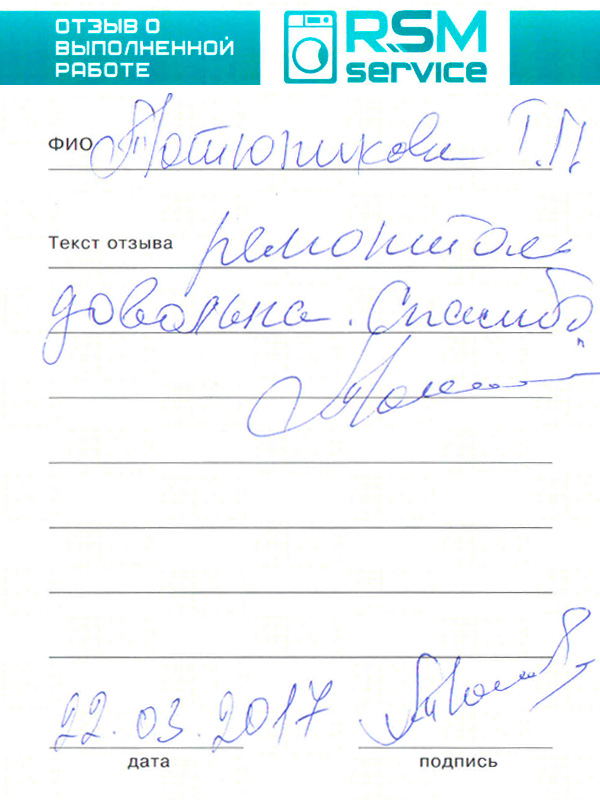 ОТЗЫВ О
ВЫПОЛНЕННОЙ
РАБОТЕ
RSM
service
ФИО Т.П.
Текст отзыва ремонтом
довольна. Спасибо
22.03.2017
дата
подпись